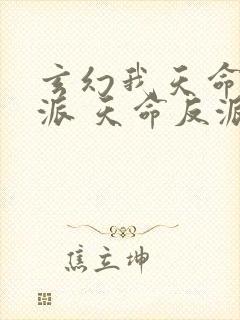 玄幻我天命
派 天命反派
焦立坤